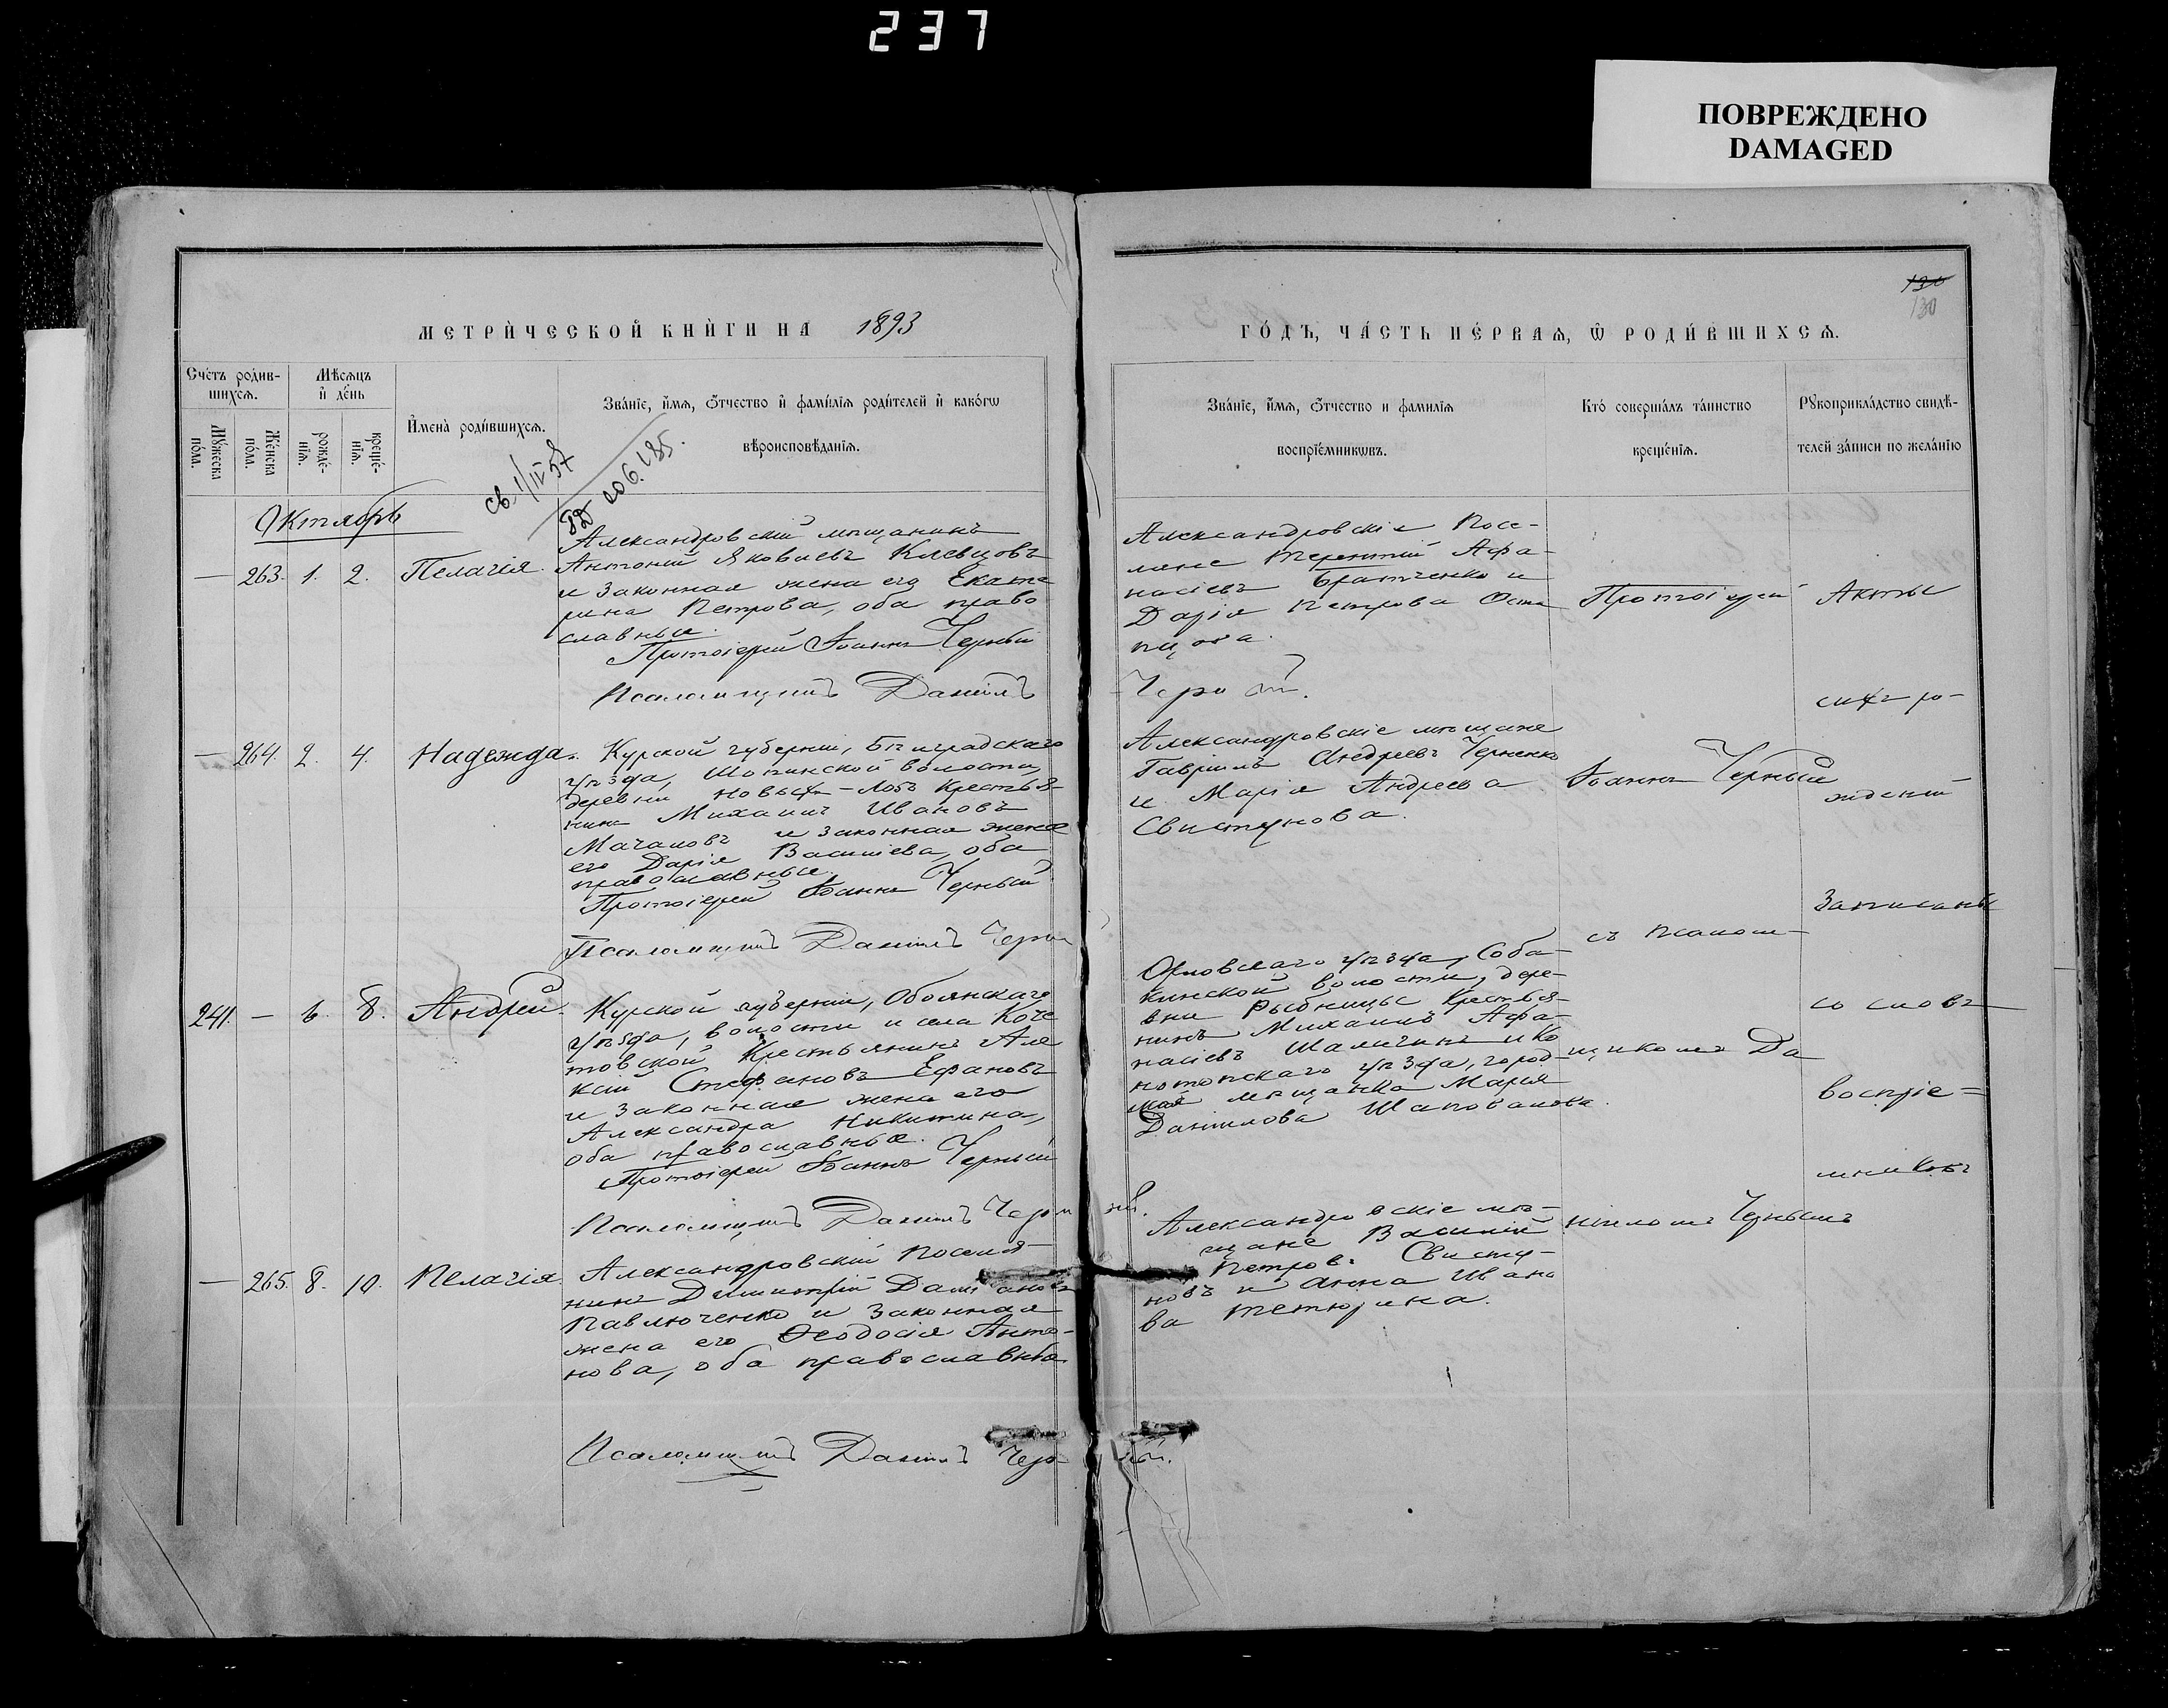 237
ПОВРЕЖДЕНО
DAMAGED
130
130
МЕТРИ́ЧЕСКОЙ КНИ́ГИ НА 1893
ГО́ДЪ, ЧА́СТЬ ПЕ́РВАѦ, Ѡ҆ РОДИ́ВШИХСѦ.
Сче́тъ роди́в-
шихсѧ.
Мѣ́сѧцъ
и҆ де́нь
И҆мена̀ роди́вшихсѧ.
Зва́нїе, и҆́мѧ, ѻ҆́тчество и҆ фами́лїѧ роди́телей и҆ како́гѡ
вѣроисповѣ́данїѧ.
Мꙋ́жеска
по́ла.
Же́нска
по́ла.
рожде́-
нїѧ.
креще́-
нїѧ.
Зва́нїе, и҆́мѧ, ѻ҆́тчество и фами́лїѧ
воспрїе́мникѡвъ.
Кто́ соверша́лъ та́инство
креще́нїѧ.
Рꙋкоприкла́дство свидѣ́-
телей за́писи по жела́нїю
Октябрь
— 263. 1. 2. Пелагія.
Александровскій мѣщанинъ
Антоній Яковлевъ Клевцовъ
и законная жена его Екате
рина Петрова, оба право
славные.
Протоіерей Іоаннъ Черный
Псаломщикъ Даніилъ
Александровскіе Посе-
ляне Терентій Афа-
насіевъ Братченко и
Дарія Петрова
Протоіерей
Акты
сихъ ро-
— 264. 2. 4. Надежда.
Курской губерніи, Бѣлградскаго
уѣзда, Шопинской волости,
деревни Крестья-
нинъ Михаилъ Ивановъ
и законная жена
его Дарія Васильева, оба
православные.
Протоіерей Іоаннъ Черный
Псаломщикъ Даніилъ Черн
Александровскіе мѣщане
Гавріилъ Андреевъ Черненко
и Марія Андреева
Свистунова.
Іоаннъ Черный
жденій
Записаны
241. — 6. 8. Андрей.
Курской губерніи, Обоянскаго
уѣзда, волости и села Коче
товской Крестьянинъ Але
ксій Стефановъ Ефановъ
и законная жена его
Александра Никитина,
оба православные.
Протоіерей Іоаннъ Черный
Псаломщикъ Даніилъ Черн ый.
Орловскаго уѣзда, Соба-
кинской волости, дере-
вни Рыбницы Крестья-
нинъ Михаилъ Афа-
насіевъ и Ко
нотопскаго уѣзда,
мѣщанка Марія
Даніилова Шаповалова.
съ псалом-
щикомъ Да
ніиломъ Чернымъ
со словъ
воспріе=
мниковъ
— 265. 8. 10. Пелагія.
Александровскій Поселя-
нинъ Димитрій Даміановъ
Павлюченко и законная
жена его Ѳеодосія Анто-
нова, оба православные.
Псаломщикъ Даніилъ Чер ный.
Александровскіе мѣ-
щане Василій
Петровъ Свисту-
новъ и Анна Ивано
ва Тетюрина.